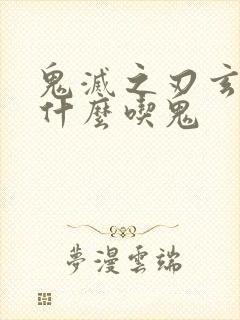 鬼滅之刃玄
什麼喫鬼
夢漫雲端